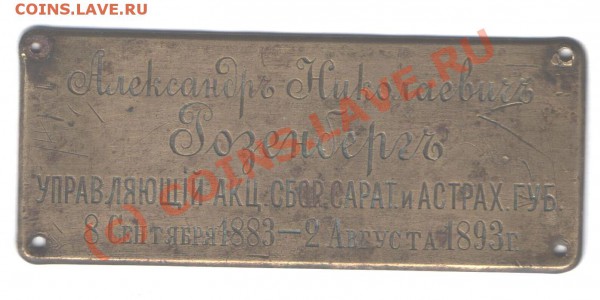 COINS.LAVE.RU
Александръ Николаевичъ
Розенбергъ
УПРАВЛЯЮЩІЙ АКЦ. СБОР. САРАТ. и АСТРАХ. ГУБ.
8 Сентября 1883 — 2 Августа 1893 г.
(c) COINS.LAVE.RU
COINS.LAVE.RU